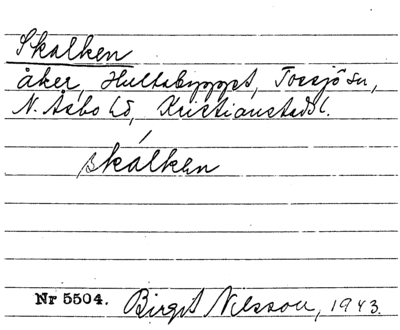 Skalken
åker, Hultabygget, Tossjö sn,
N. Åsbo hd, Kristianstads l.
skálken
Nr 5504. Birgit Nilsson, 1943.